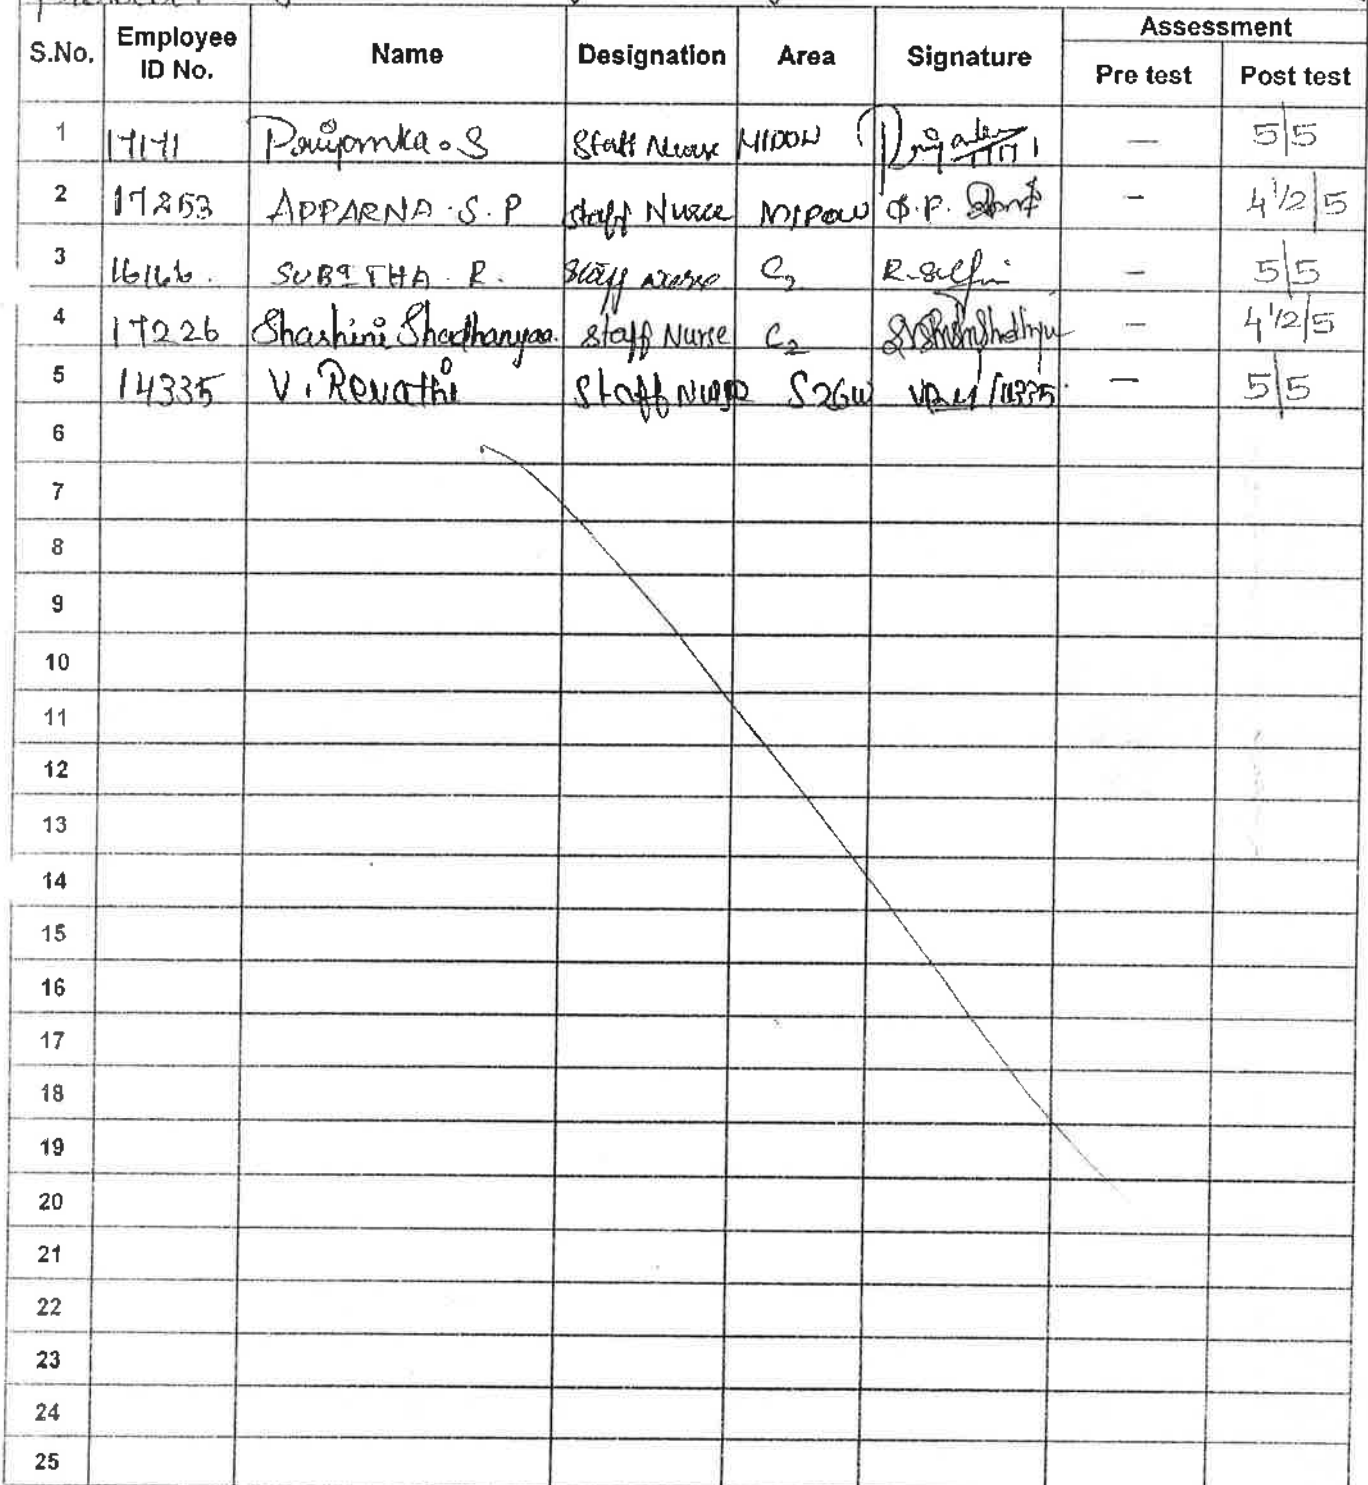 Assessment
S.No. Employee ID No. Name Designation Area Signature Pre test Post test
1 17171 Priyanka.S Staff Nurse — 5/5
2 17253 APPARNA.S.P Staff Nurse S.P. - 4 1/2/5
3 16166. SUBITHA.R. Staff Nurse C2 - 5/5
4 17226 Shashini Shadhanyaa. Staff Nurse C2 - 4 1/2/5
5 14335 V.Revathi Staff Nurse S2GW - 5/5
6
7
8
9
10
11
12
13
14
15
16
17
18
19
20
21
22
23
24
25